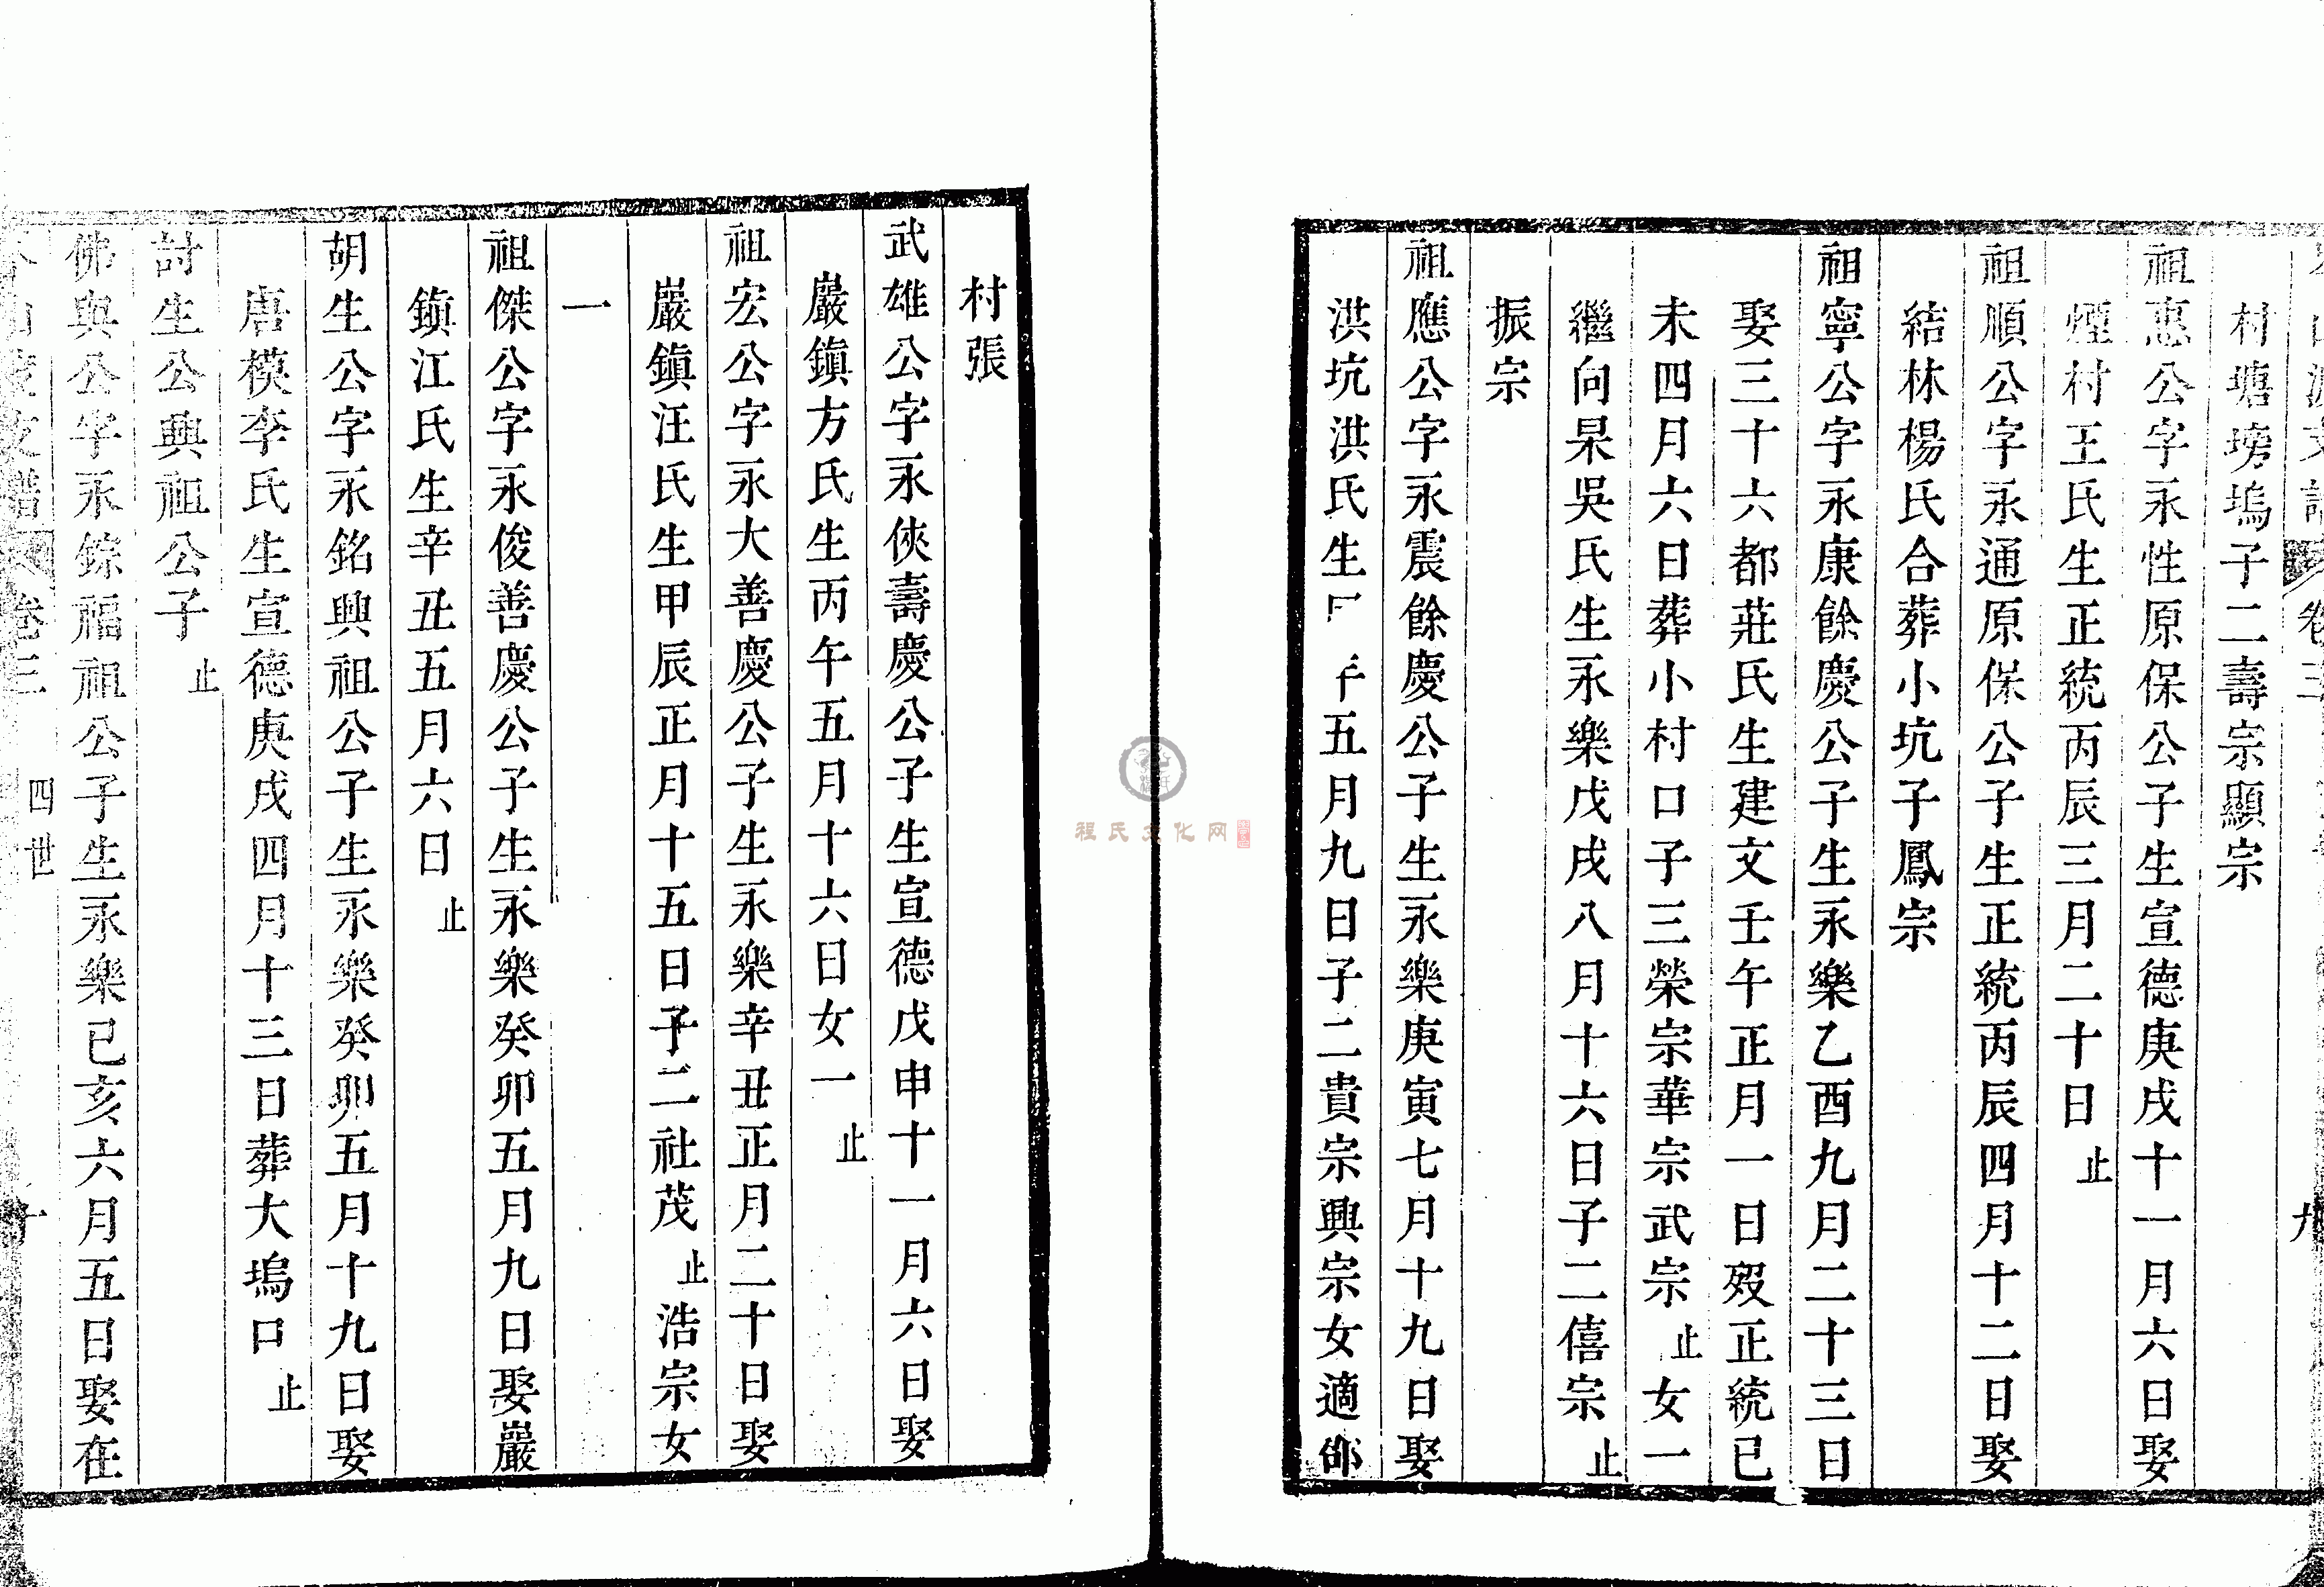 村塘塝塢子二壽宗顯宗
祖惠公字永性原保公子生宣德庚戌十一月六日娶
煙村王氏生正統丙辰三月二十日止
祖順公字永通原保公子生正統丙辰四月十二日娶
結林楊氏合葬小坑子鳳宗
祖寧公字永康餘慶公子生永樂乙酉九月二十三日
娶三十六都莊氏生建文壬午正月一日歿正統已
未四月六日葬小村口子三榮宗華宗武宗止女一
繼向杲吳氏生永樂戊戌八月十六日子二僖宗止
振宗
祖應公字永震餘慶公子生永樂庚寅七月十九日娶
洪坑洪氏生五月九日子二貴宗興宗女適邰
村張
武雄公字永俠壽慶公子生宣德戊申十一月六日娶
嚴鎭方氏生丙午五月十六日女一止
祖宏公字永大善慶公子生永樂辛丑正月二十日娶
巖鎭汪氏生甲辰正月十五日子二社茂止浩宗女
一
祖傑公字永俊善慶公子生永樂癸卯五月九日娶巖
鎭江氏生辛丑五月六日止
胡生公字永銘興祖公子生永樂癸卯五月十九日娶
唐模李氏生宣德庚戌四月十三日葬大塢口止
討生公興祖公子止
佛與公字永錝福祖公子生永樂已亥六月五日娶在
卷三 四世
程氏文化网